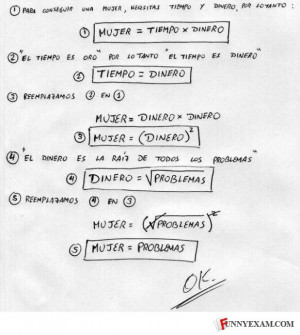 ① PARA CONSEGUIR UNA MUJER, NECESITAS TIEMPO Y DINERO, POR LO TANTO:
① MUJER = TIEMPO × DINERO
② "EL TIEMPO ES ORO" POR LO TANTO "EL TIEMPO ES DINERO"
② TIEMPO = DINERO
③ REEMPLAZAMOS ② EN ①
MUJER = DINERO × DINERO
③ MUJER = (DINERO)²
④ "EL DINERO ES LA RAÍZ DE TODOS LOS PROBLEMAS"
④ DINERO = √PROBLEMAS
⑤ REEMPLAZAMOS ④ EN ③
MUJER = (√PROBLEMAS)²
⑤ MUJER = PROBLEMAS
OK.
FUNNYEXAM.COM